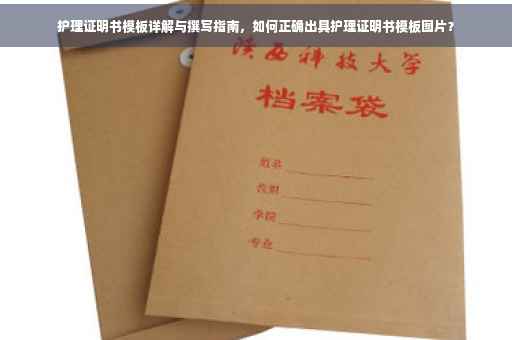 护理证明书模板详解与撰写指南，如何正确出具护理证明书模板图片？
陕西科技大学
档案袋
姓名
学院
专业